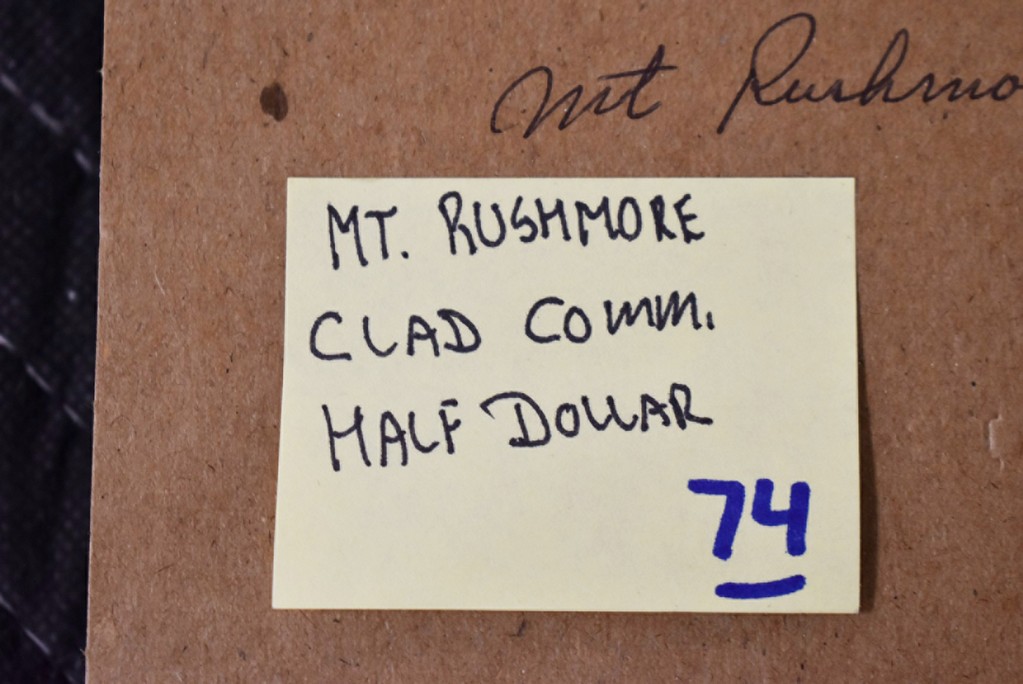 Mt Rushmo
MT. RUSHMORE
CLAD COMM.
HALF DOLLAR
74